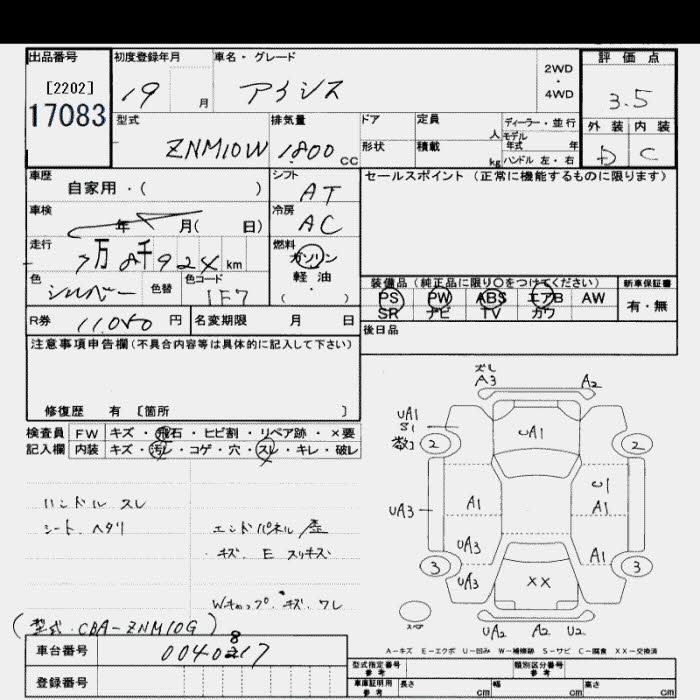 出品番号 初度登録年月 車名・グレード 評価点
[2202] 2WD
17083 19 月 アイシス ・ 3.5
4WD
型式 排気量 ドア 定員 ディーラー・並行 外装 内装
ZNM10W 1800 CC 人 モデル年式 年 D C
形状 積載 kg ハンドル 左・右
車歴 シフト セールスポイント(正常に機能するものに限ります)
自家用・( ) AT
車検 冷房
年 月( 日) AC
走行 燃料
7万 8千924 km ガソリン
色 色替 色コード 軽・油 装備品(純正品に限り○をつけてください) 新車保証書
シルバー 1F7 ( ) PS PW ABS エアB AW 有・無
SR ナビ TV カワ
R券 11080 円 名変期限 月 日 後日品
注意事項申告欄(不具合内容等は具体的に記入して下さい)
修復歴 有 [箇所 ]
検査員 FW キズ・飛石・ヒビ割・リペア跡・×要
記入欄 内装 キズ・汚レ・コゲ・穴・スレ・キレ・破レ
A3 A2
UA1
S1 UA1
2 2
U1
UA3 A1 A1
UA3 A1
3 3
UA3 XX
スペア
UA2 A2 U2
ハンドル スレ
シート ヘタリ エンドパネル
キズ. E スリキズ
Wキャップ. キズ. ワレ
(型式. CBA-ZNM10G)
A-キズ E-エクボ U-凹み W-補修跡 S-サビ C-腐食 XX-交換済
車台番号 型式指定番号 参考 類別区分番号 参考
登録番号 車庫証明用 参考 長さ cm 幅 cm 高さ cm